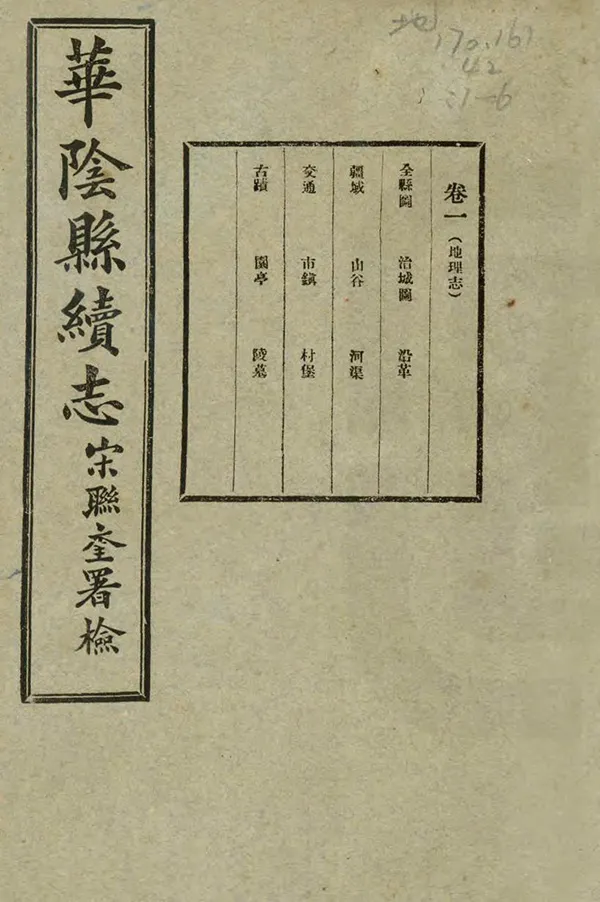 地
170.161
42
:1-6
卷一（地理志）
全縣圖 治城圖 沿革
疆域 山谷 河渠
交通 市鎮 村堡
古蹟 園亭 陵墓
華陰縣續志 宋聯奎署檢